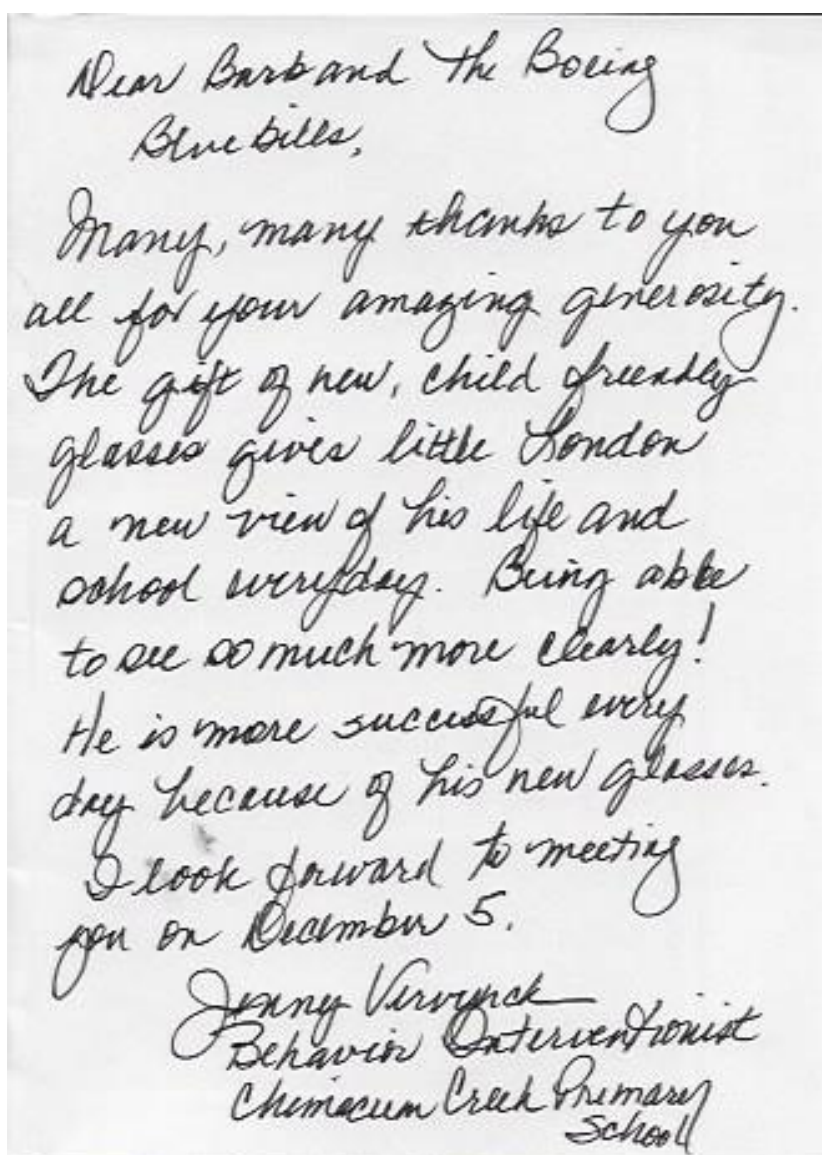 Dear Barb and the Boeing
Bluebills,
Many, many thanks to you
all for your amazing generosity.
The gift of new, child friendly
glasses gives little London
a new view of his life and
school everyday. Being able
to see so much more clearly!
He is more successful every
day because of his new glasses.
I look forward to meeting
you on December 5.
Jenny
Behavior Interventionist
Chimacum Creek Primary
School